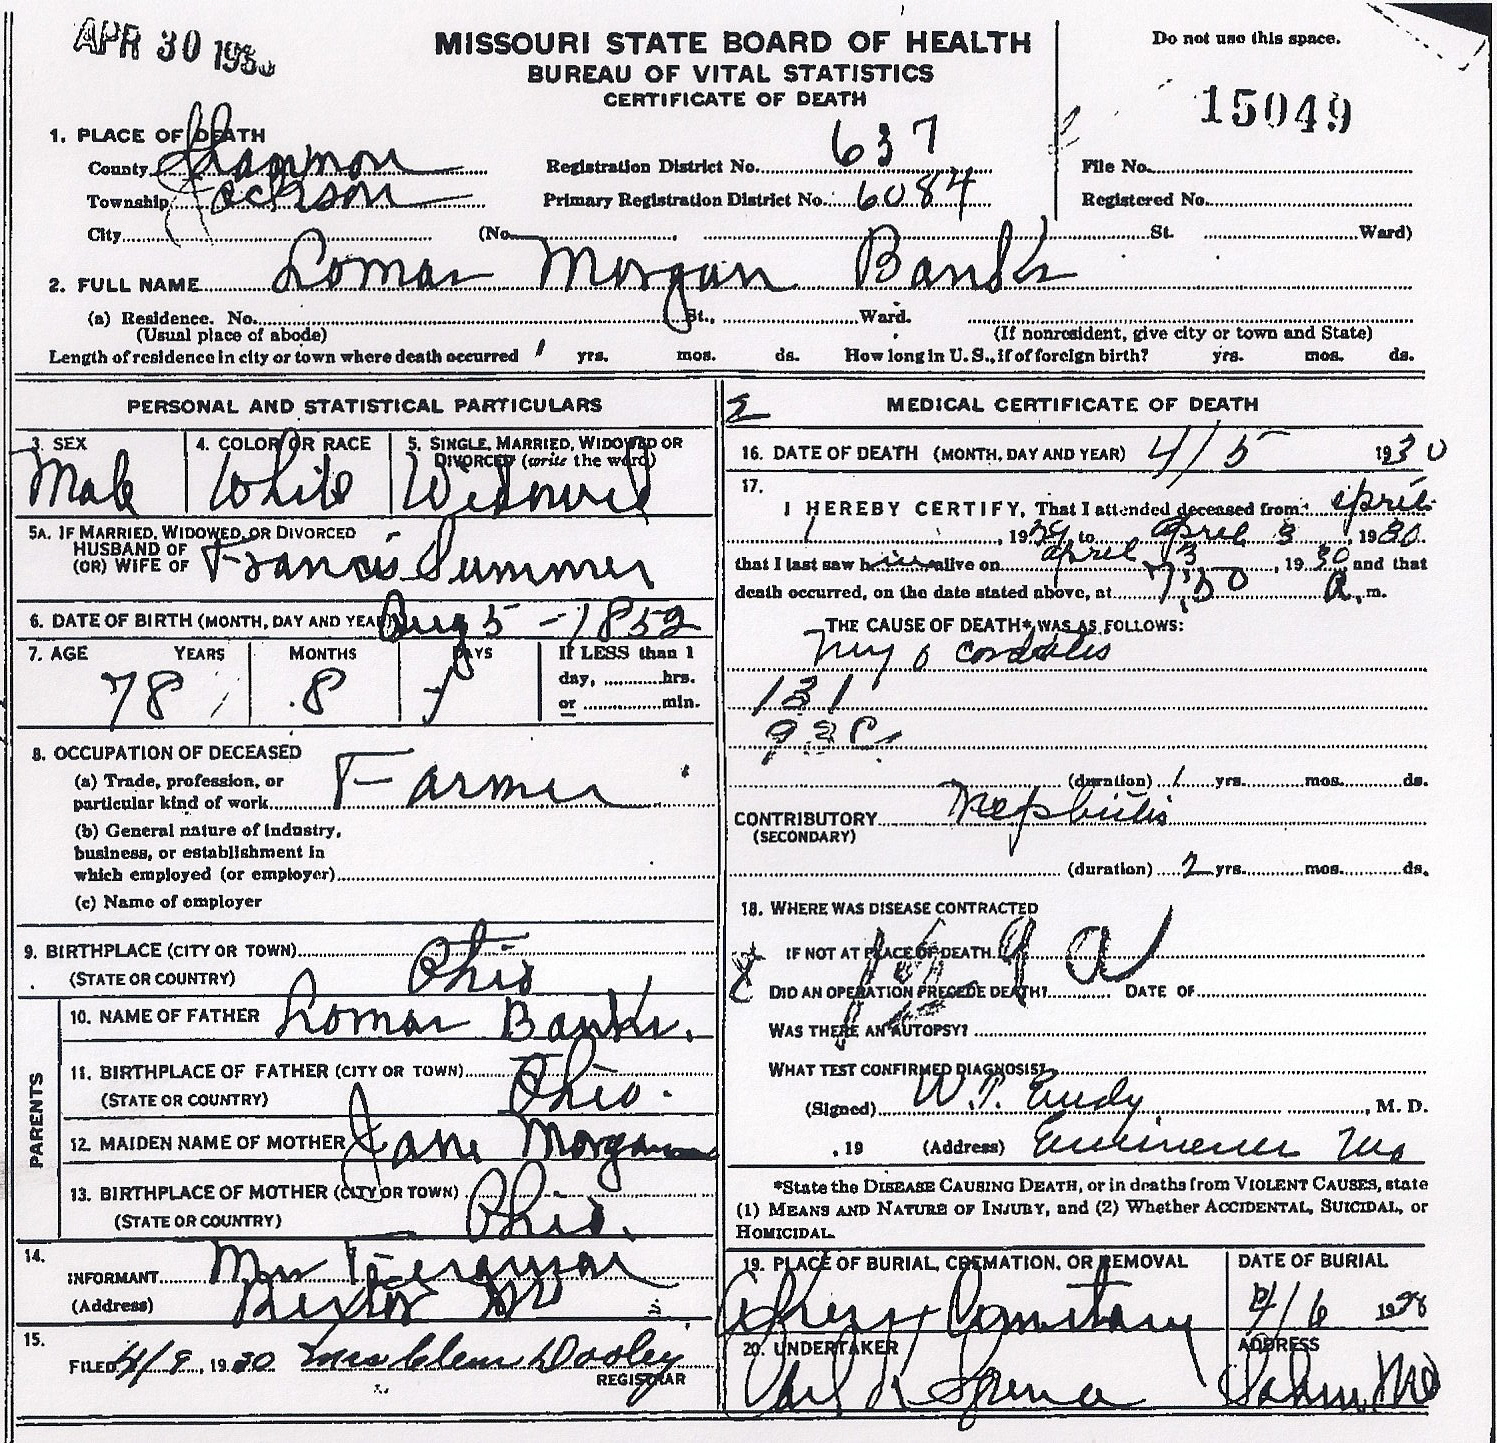 APR 30 193
MISSOURI STATE BOARD OF HEALTH
BUREAU OF VITAL STATISTICS
CERTIFICATE OF DEATH
Do not use this space.
15049
1. PLACE OF DEATH
County Shannon Registration District No. 637 File No.
Township Jackson Primary Registration District No. 6084 Registered No.
City (No. St. Ward)
2. FULL NAME Lomar Morgan Banks
(a) Residence. No. St., Ward.
(Usual place of abode) (If nonresident, give city or town and State)
Length of residence in city or town where death occurred yrs. mos. ds. How long in U. S., if of foreign birth? yrs. mos. ds.
PERSONAL AND STATISTICAL PARTICULARS
3. SEX 4. COLOR OR RACE 5. SINGLE, MARRIED, WIDOWED OR
DIVORCED (write the word)
Male White Widowed
5A. IF MARRIED, WIDOWED, OR DIVORCED
HUSBAND OF
(OR) WIFE OF Francis Summer
6. DATE OF BIRTH (MONTH, DAY AND YEAR) Aug 5 - 1852
7. AGE YEARS MONTHS DAYS If LESS than 1
day, hrs.
or min.
78 8
8. OCCUPATION OF DECEASED
(a) Trade, profession, or
particular kind of work Farmer
(b) General nature of industry,
business, or establishment in
which employed (or employer)
(c) Name of employer
9. BIRTHPLACE (CITY OR TOWN)
(STATE OR COUNTRY) Ohio
PARENTS
10. NAME OF FATHER Lomar Banks.
11. BIRTHPLACE OF FATHER (CITY OR TOWN)
(STATE OR COUNTRY) Ohio.
12. MAIDEN NAME OF MOTHER Jane Morgan
13. BIRTHPLACE OF MOTHER (CITY OR TOWN)
(STATE OR COUNTRY) Ohio.
14.
INFORMANT Mrs Ferguson
(Address) Mo
15.
FILED 4/9, 1930 Mrs Clem Dooley
REGISTRAR
2
MEDICAL CERTIFICATE OF DEATH
16. DATE OF DEATH (MONTH, DAY AND YEAR) 4/5 1930
17.
I HEREBY CERTIFY, That I attended deceased from april
1, 19 to april 3, 1930
that I last saw him alive on april 3, 1930 and that
death occurred, on the date stated above, at 7:50 a. m.
THE CAUSE OF DEATH* WAS AS FOLLOWS:
Myocarditis
131
93c
(duration) 1 yrs. mos. ds.
CONTRIBUTORY Nephritis
(SECONDARY)
(duration) 2 yrs. mos. ds.
18. WHERE WAS DISEASE CONTRACTED
IF NOT AT PLACE OF DEATH
DID AN OPERATION PRECEDE DEATH? DATE OF
WAS THERE AN AUTOPSY?
WHAT TEST CONFIRMED DIAGNOSIS?
(Signed) W.T. Eudy, M. D.
, 19 (Address) Eminence Mo
*State the DISEASE CAUSING DEATH, or in deaths from VIOLENT CAUSES, state
(1) MEANS AND NATURE OF INJURY, and (2) Whether ACCIDENTAL, SUICIDAL, or
HOMICIDAL.
19. PLACE OF BURIAL, CREMATION, OR REMOVAL DATE OF BURIAL
4/6 19
20. UNDERTAKER ADDRESS
Carl K Spence Salem, Mo